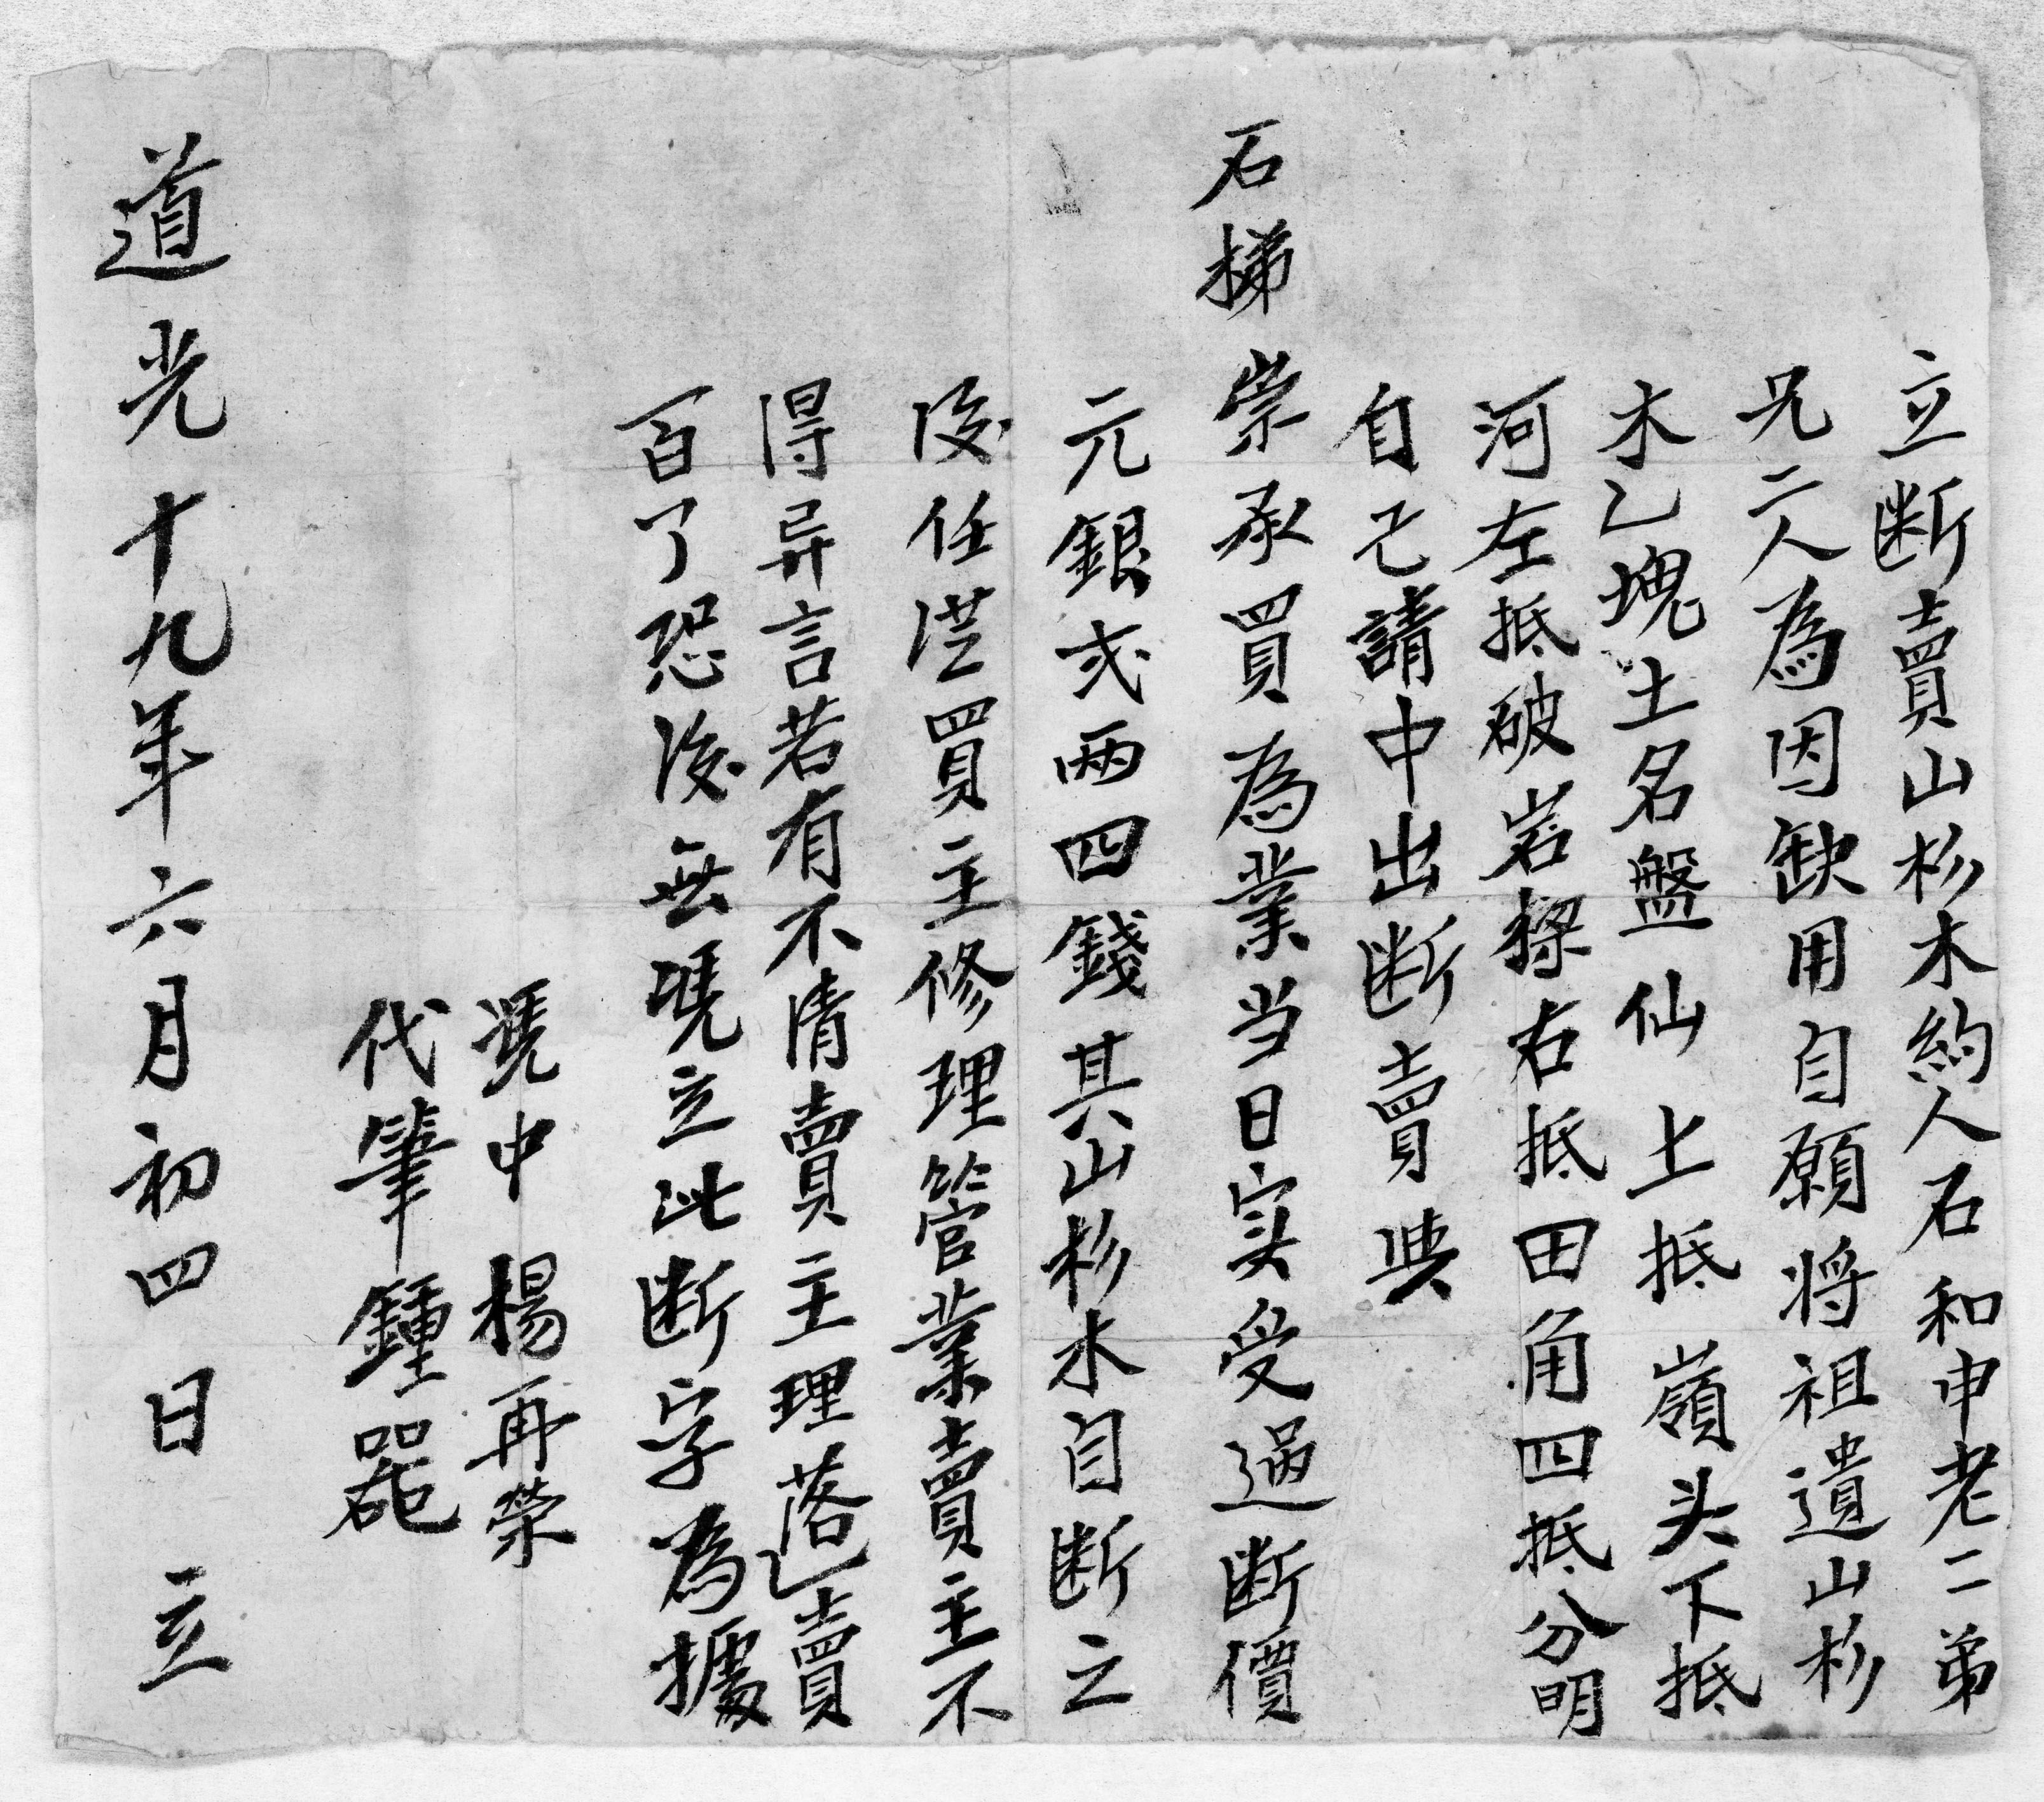 立断賣山杉木約人石和申老二弟
兄二人為因缺用自願将祖遺山杉
木乙塊土名盤仙上抵嶺头下抵
河左抵破岩樑右抵田角四抵分明
自己請中出断賣與
石梯崇承買為業当日实受過断價
元銀弍兩四錢其山杉木自断之
後任從買主修理管業賣主不
得异言若有不清賣主理落賣
百了恐後無凴立此断字為據
凴中楊再榮
代筆鍾
道光十九年六月初四日立